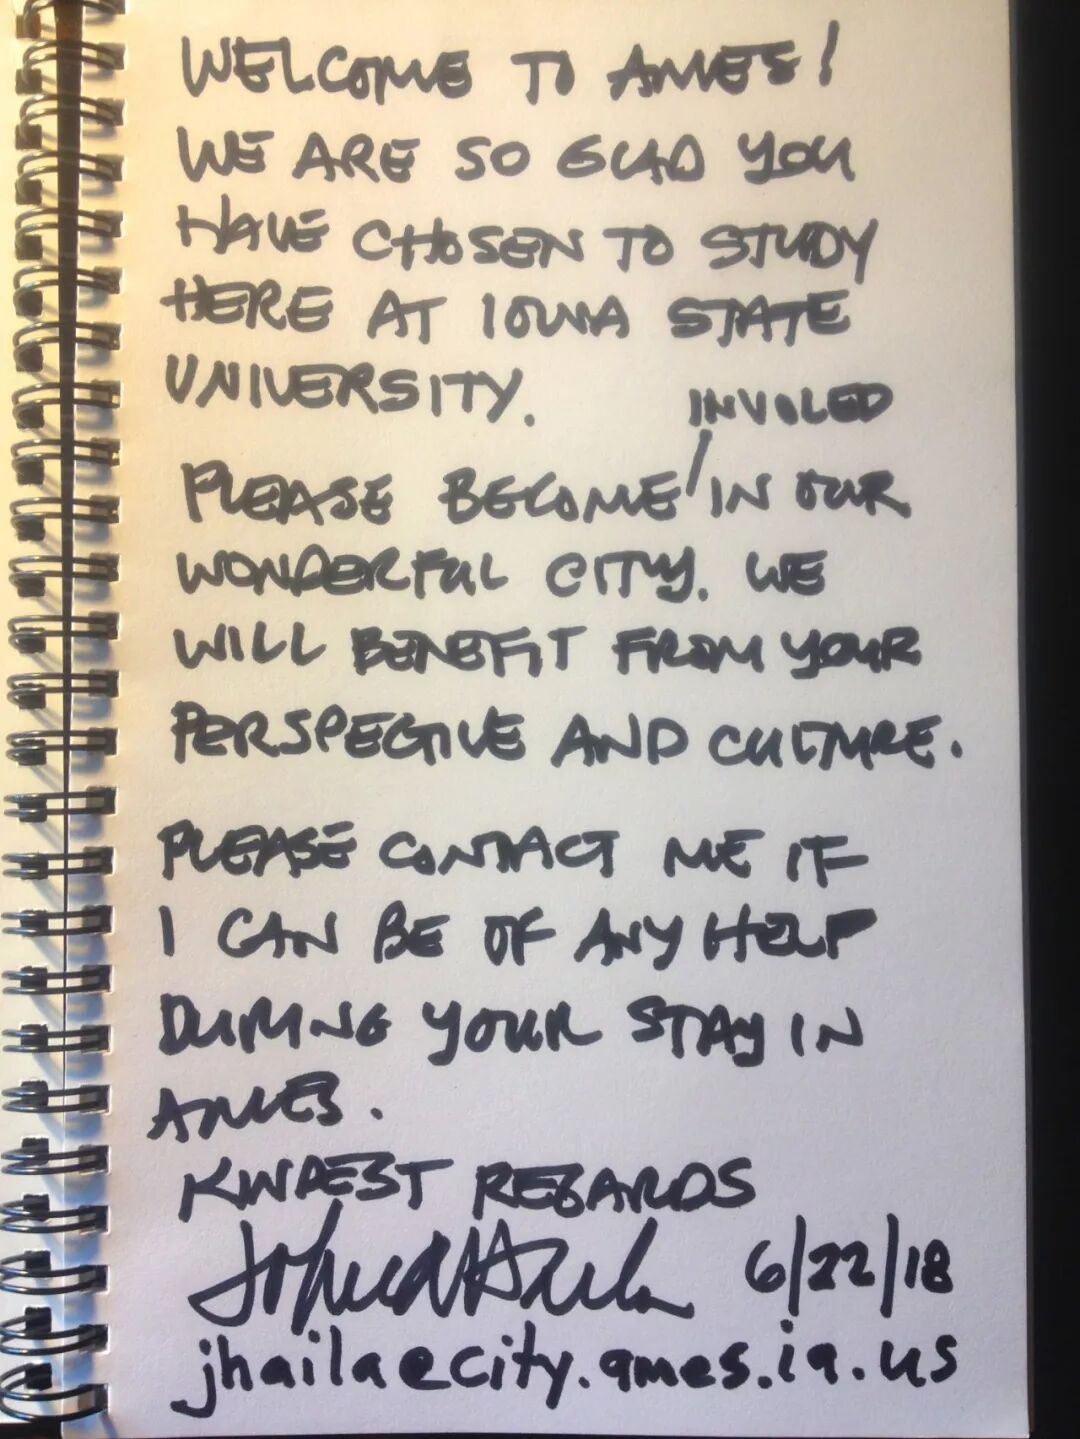 WELCOME TO AMES!
WE ARE SO GLAD YOU
HAVE CHOSEN TO STUDY
HERE AT IOWA STATE
UNIVERSITY.
INVOLED
PLEASE BECOME IN OUR
WONDERFUL CITY. WE
WILL BENEFIT FROM YOUR
PERSPECTIVE AND CULTURE.
PLEASE CONTACT ME IF
I CAN BE OF ANY HELP
DURING YOUR STAY IN
AMES.
KINDEST REGARDS
6/22/18
jhaila@city.ames.ia.us